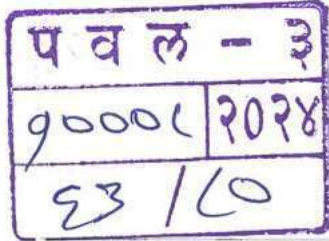 प व ल - ३
१०००८ २०२४
६३ / ८०